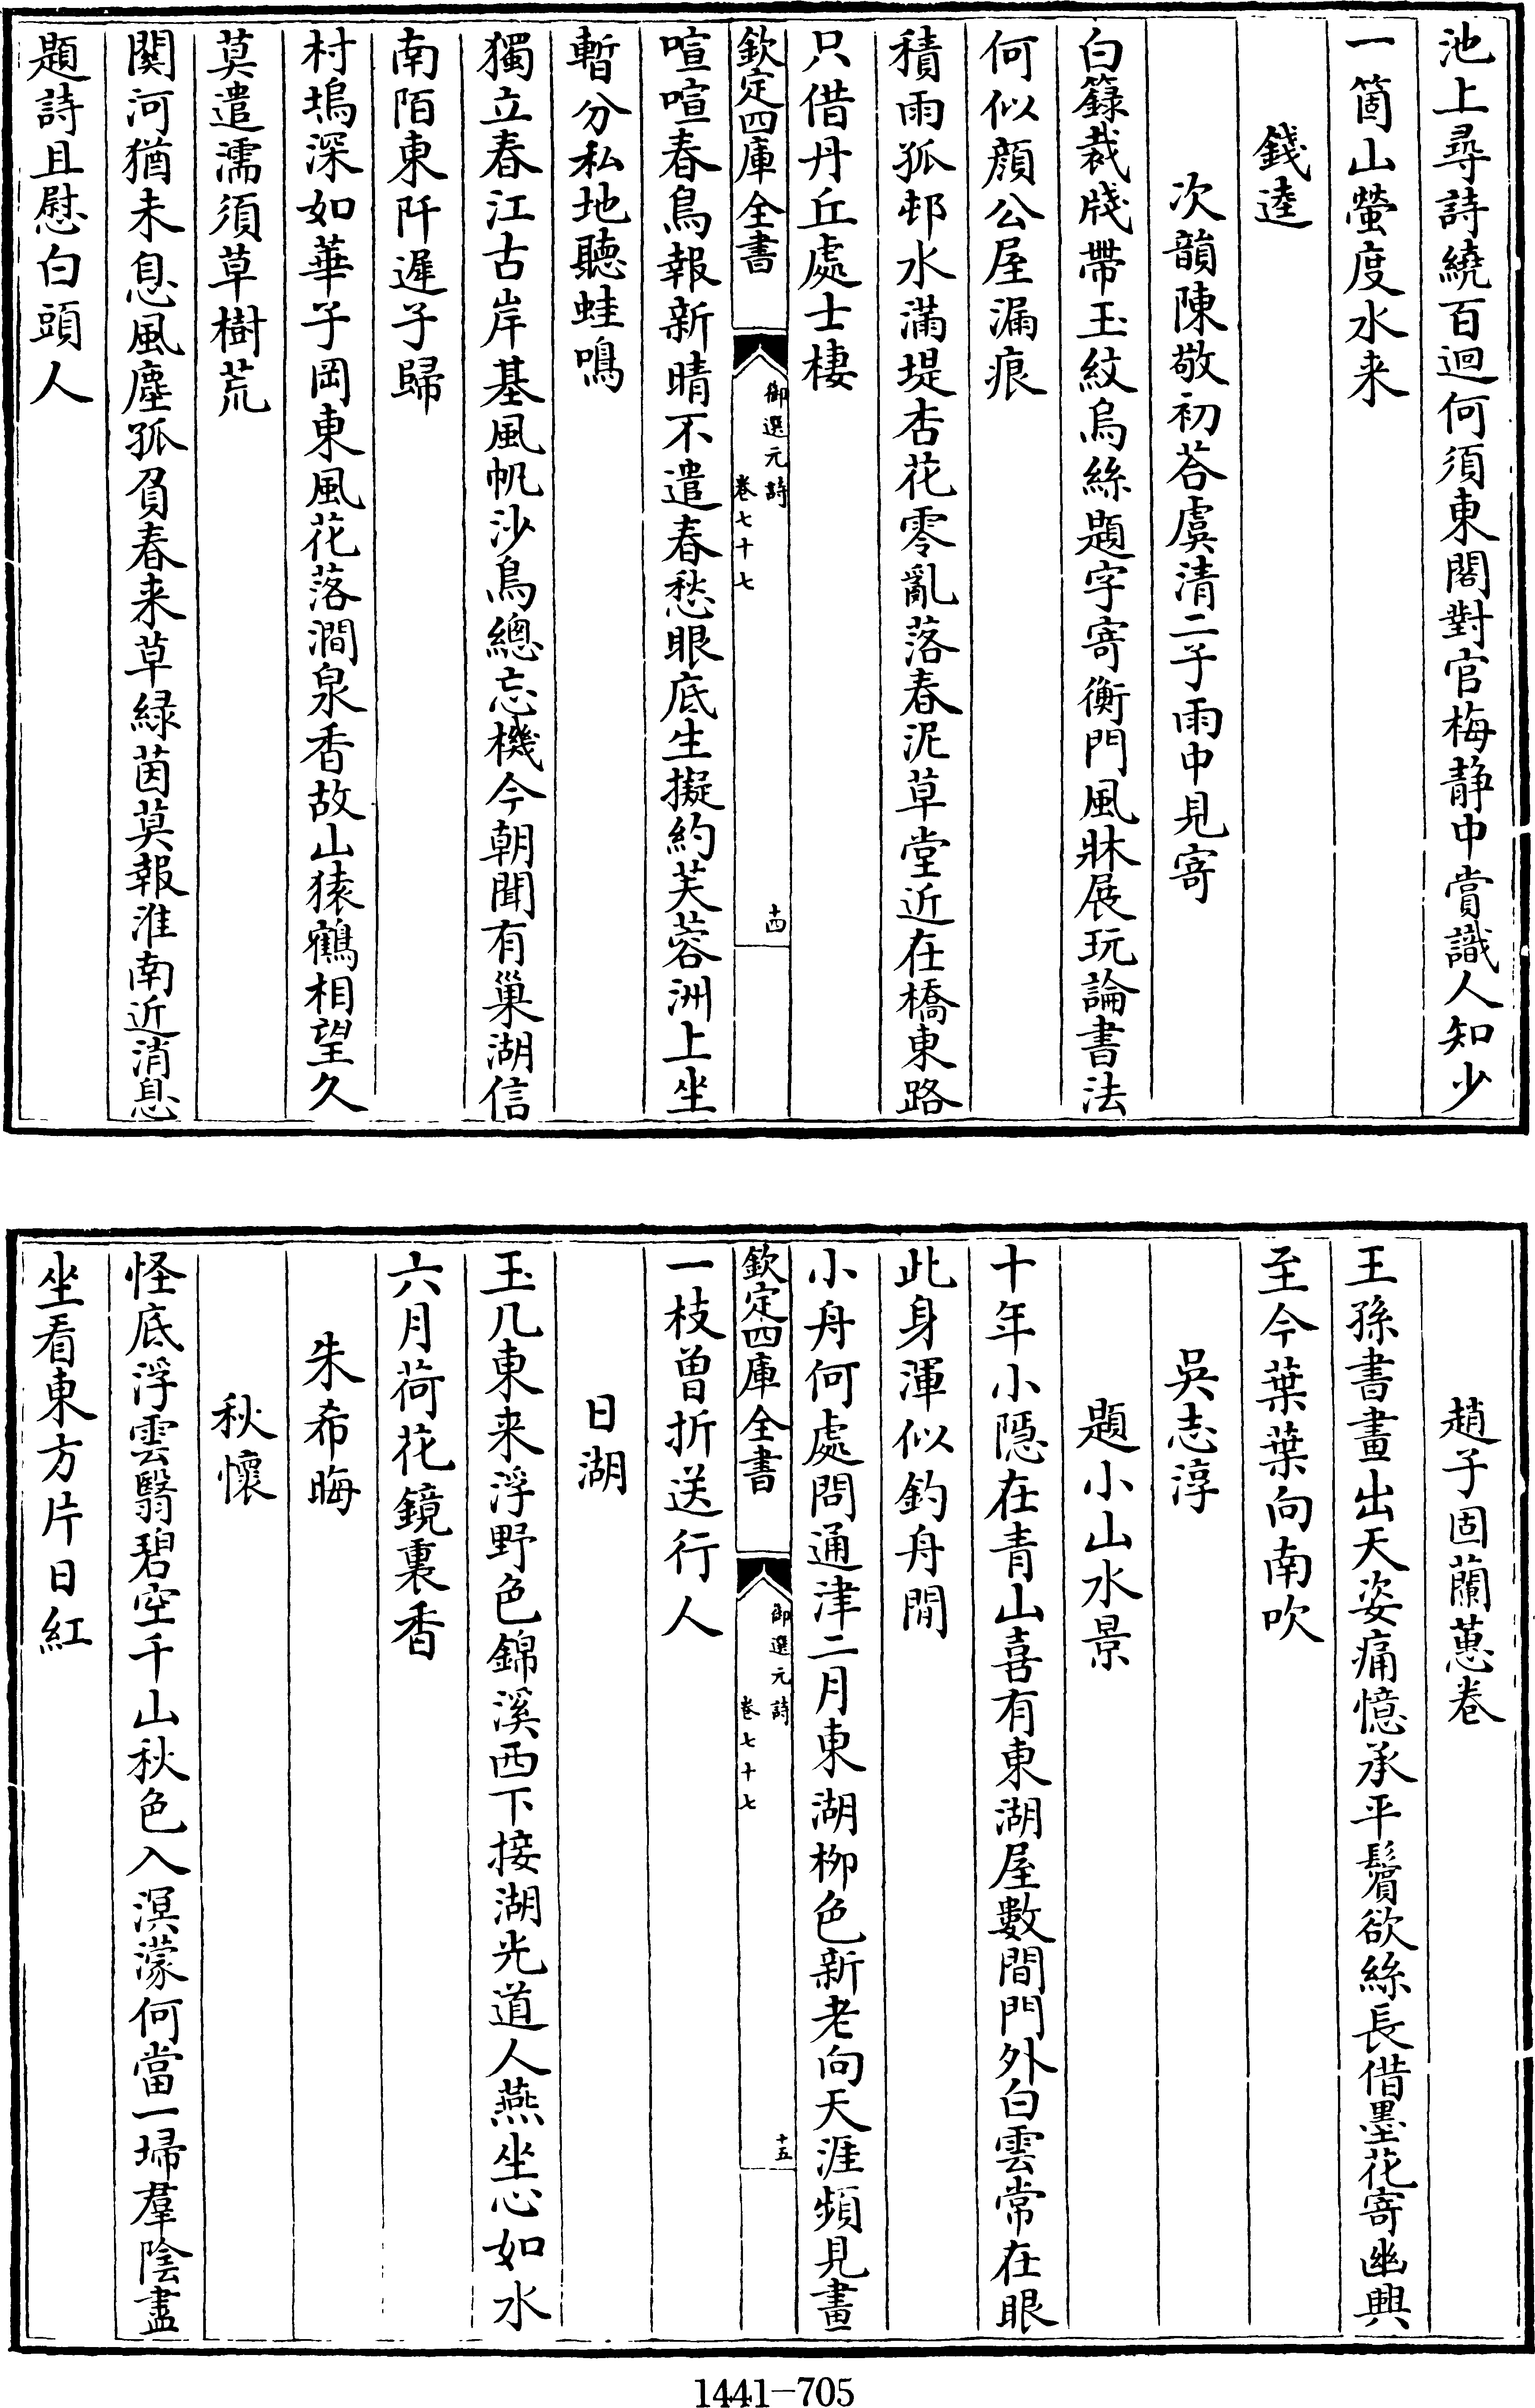 池上尋詩繞百迴何須東閣對官梅静中賞識人知少
一箇山螢度水来
錢逵
次韻陳敬初荅虞清二子雨中見寄
白籙裁牋帶玉紋烏絲題字寄衡門風牀展玩論書法
何似顔公屋漏痕
積雨孤邨水滿堤杏花零亂落春泥草堂近在橋東路
只借丹丘處士棲
欽定四庫全書
御選元詩
卷七十七
十四
喧喧春鳥報新晴不遣春愁眼底生擬約芙蓉洲上坐
暫分私地聽蛙鳴
獨立春江古岸基風帆沙鳥總忘機今朝聞有巢湖信
南陌東阡遲子歸
村塢深如華子岡東風花落澗泉香故山猿鶴相望久
莫遣濡須草樹荒
關河猶未息風塵孤負春来草緑茵莫報淮南近消息
題詩且慰白頭人
趙子固蘭蕙卷
王孫書畫出天姿痛憶承平鬢欲絲長借墨花寄幽興
至今葉葉向南吹
吳志淳
題小山水景
十年小隱在青山喜有東湖屋數間門外白雲常在眼
此身渾似釣舟閒
小舟何處問通津二月東湖柳色新老向天涯頻見畫
欽定四庫全書
御選元詩
卷七十七
十五
一枝曽折送行人
日湖
玉几東来浮野色錦溪西下接湖光道人燕坐心如水
六月荷花鏡裏香
朱希晦
秋懷
怪底浮雲翳碧空千山秋色入溟濛何當一埽羣陰盡
坐看東方片日紅
1441—705